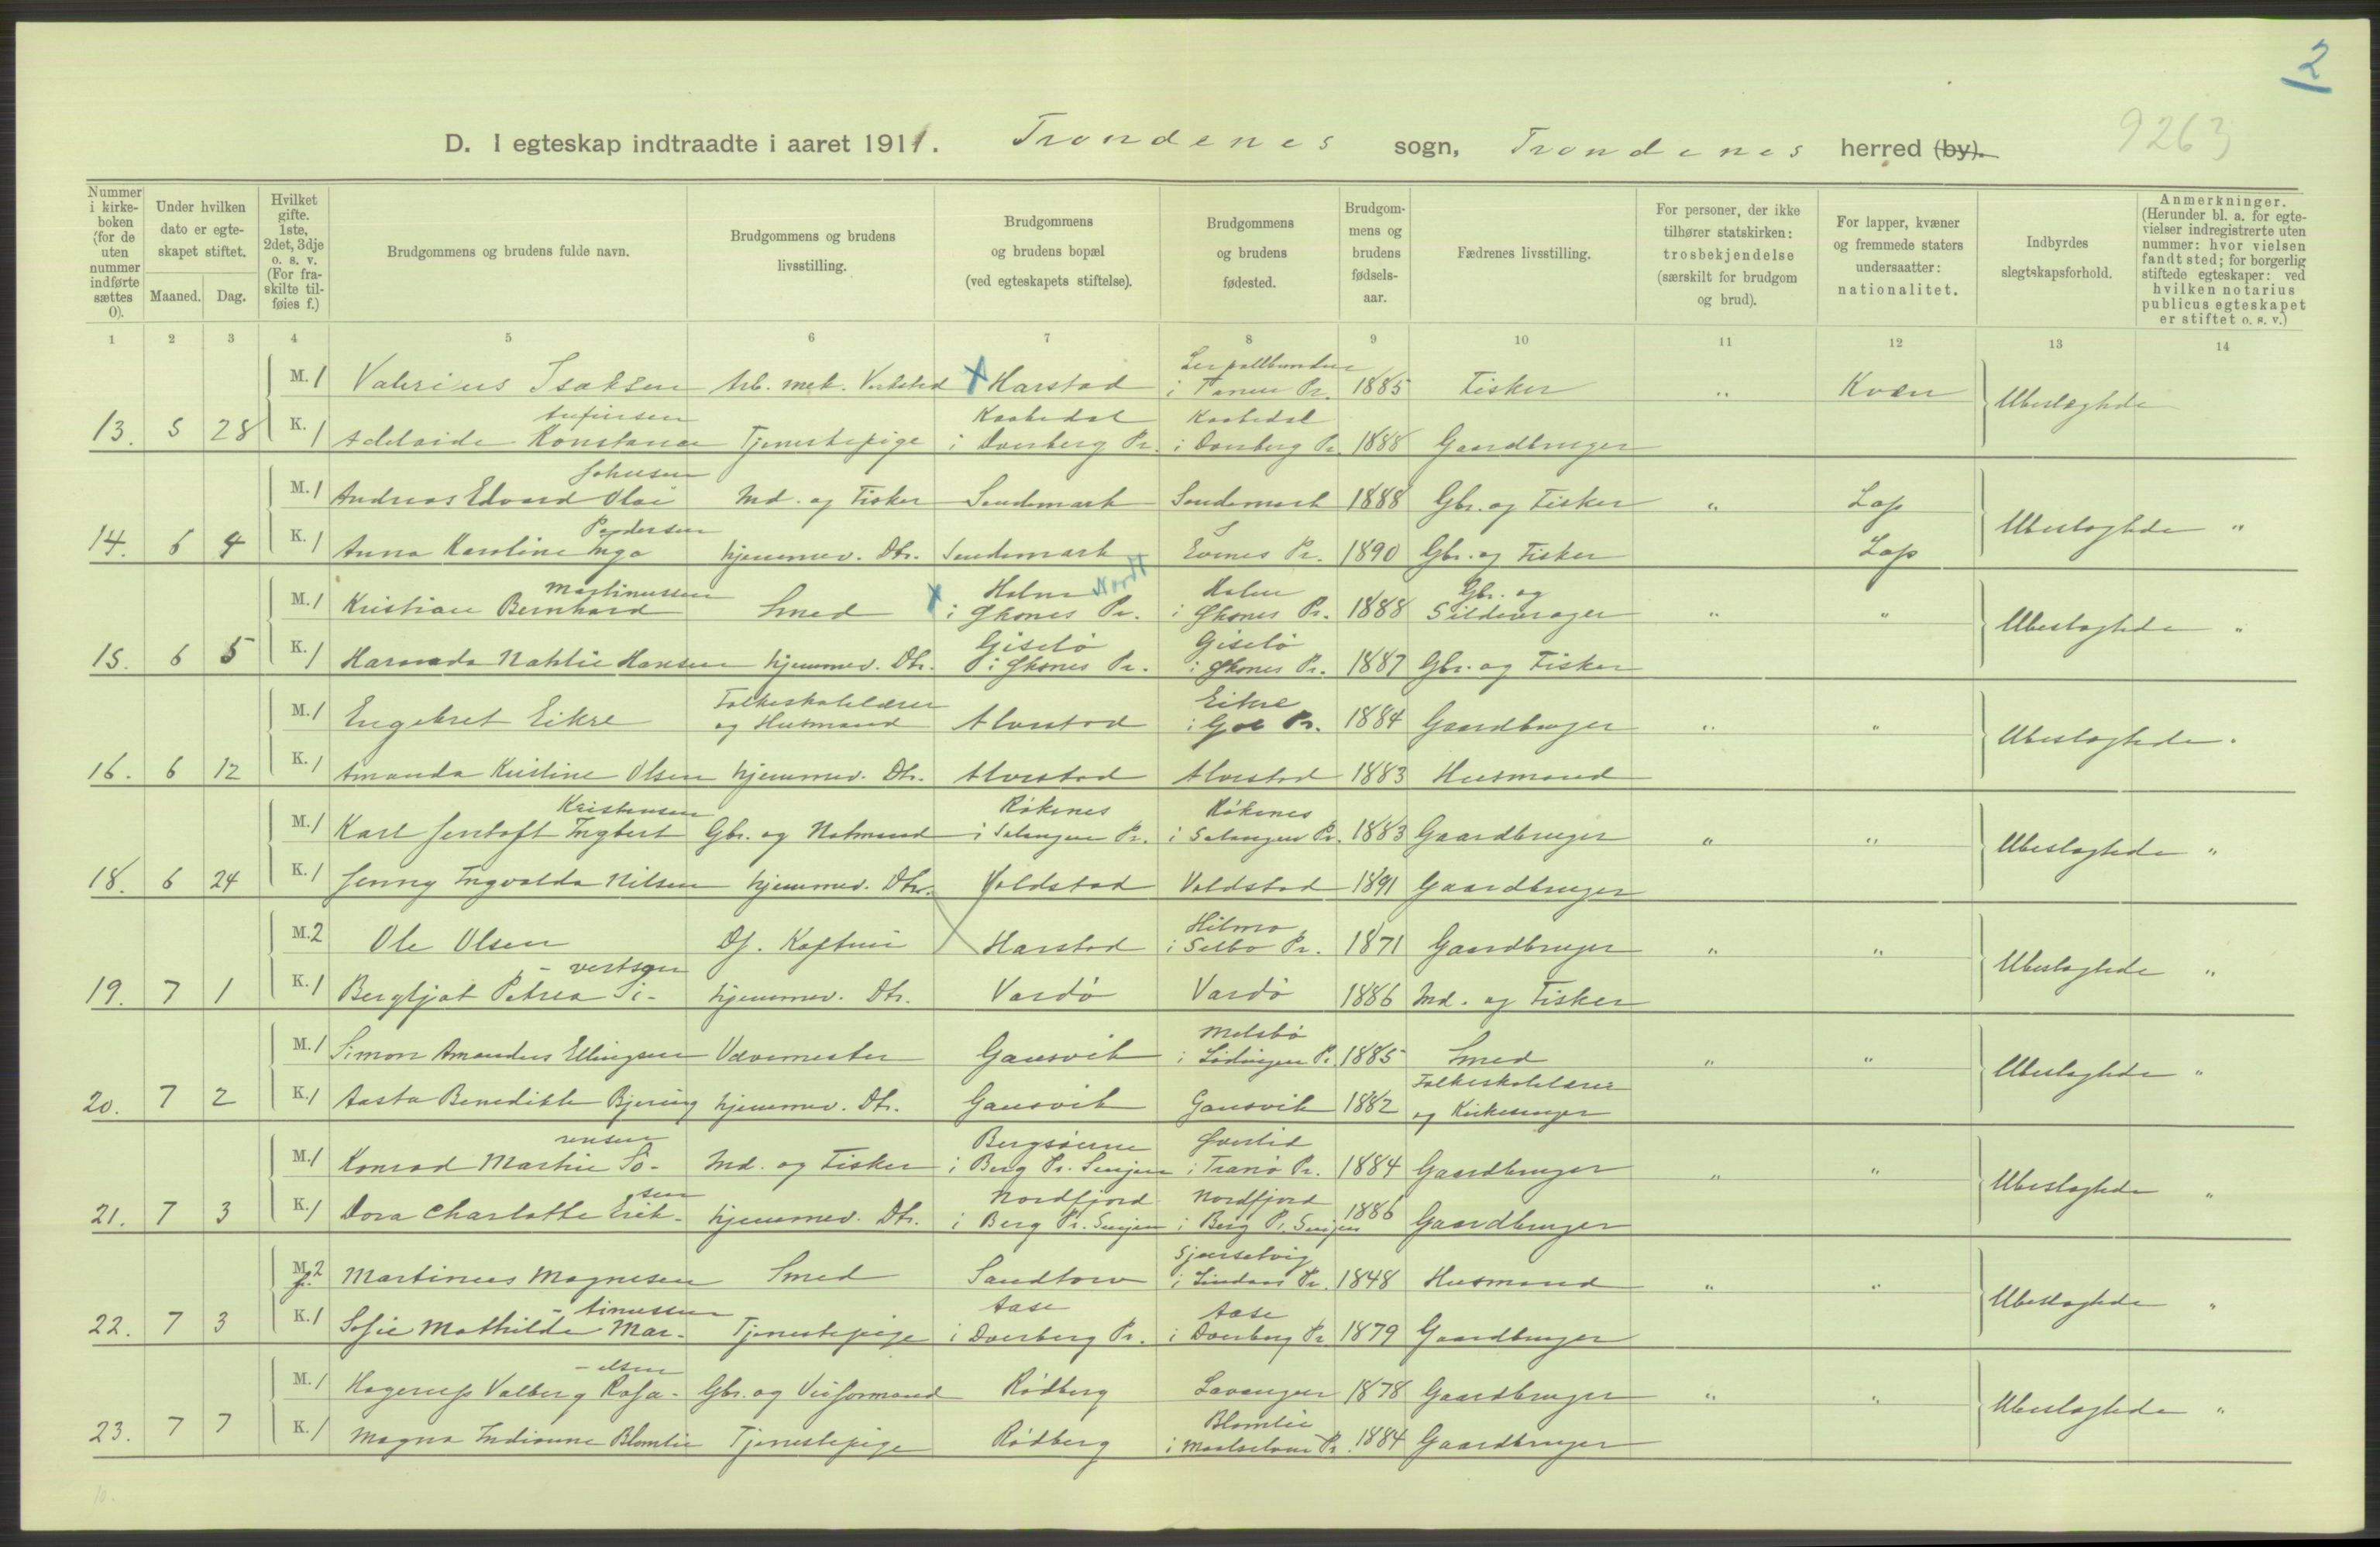 2
9263
D. I egteskap indtraadte i aaret 1911. Trondenes sogn, Trondenes herred (by).
Nummer i kirkeboken (for de uten nummer indførte sættes 0).
Under hvilken dato er egteskapet stiftet.
Maaned. Dag.
Hvilket gifte. 1ste, 2det, 3dje o. s. v. (For fraskilte tilføies f.)
Brudgommens og brudens fulde navn.
Brudgommens og brudens livsstilling.
Brudgommens og brudens bopæl (ved egteskapets stiftelse).
Brudgommens og brudens fødested.
Brudgommens og brudens fødselsaar.
Fædrenes livsstilling.
For personer, der ikke tilhører statskirken: trosbekjendelse (særskilt for brudgom og brud).
For lapper, kvæner og fremmede staters undersaatter: nationalitet.
Indbyrdes slegtskapsforhold.
Anmerkninger. (Herunder bl. a. for egtevielser indregistrerte uten nummer: hvor vielsen fandt sted; for borgerlig stiftede egteskaper: ved hvilken notarius publicus egteskapet er stiftet o. s. v.)
1 2 3 4 5 6 7 8 9 10 11 12 13 14
M. 1 Valerius Isaksen Arb. mek. Verksted Harstad i Tanen Pr. 1885 Fisker " Kvæn Ubeslægtede
13. 5 28 K. 1 Adelaide Konstance Tjenestepige Kaabedal i Dverberg Pr. Kaabedal i Dverberg Pr. 1888 Gaardbruger
M. 1 Andreas Edvard Olai Johnsen Ind. og Fisker Sandemark Sandemark 1888 Gbr. og Fisker " Lap Ubeslægtede "
14. 6 4 K. 1 Anna Karoline Inga Pedersen hjemmev. Dtr. Sandemark Evenes Pr. 1890 Gbr. og Fisker Lap
M. 1 Kristian Bernhard Martinussen Smed Holm i Øksnes Pr. Nordl Holm i Øksnes Pr. 1888 Gbr. og Sildevrager " " Ubeslægtede "
15. 6 5 K. 1 Haranda Nathlie Hansen hjemmev. Dtr. Gislø i Øksnes Pr. Gislø i Øksnes Pr. 1887 Gbr. og Fisker
M. 1 Engebret Eikre Folkeskolelærer og Husmand Alvestad Eikre i Gol Pr. 1884 Gaardbruger " " Ubeslægtede "
16. 6 12 K. 1 Amanda Kristine Olsen hjemmev. Dtr. Alvestad Alvestad 1883 Husmand
M. 1 Karl Jentoft Ingbert Kristensen Gbr. og Notmand Røkenes i Salangen Pr. Røkenes i Salangen Pr. 1883 Gaardbruger " " Ubeslægtede "
18. 6 24 K. 1 Jenny Ingvalda Nilsen hjemmev. Dtr. Voldstad Voldstad 1891 Gaardbruger
M. 2 Ole Olsen Df. Kaptein Harstad Hilmo i Selbo Pr. 1871 Gaardbruger " " Ubeslægtede "
19. 7 1 K. 1 Bergljot Petrea Si-vertsen hjemmev. Dtr. Vardø Vardø 1886 Ind. og Fisker
M. 1 Simon Amandus Ellingsen Vævemester Gausvik Melsbø i Lødingen Pr. 1885 Smed " " Ubeslægtede "
20. 7 2 K. 1 Aasta Benedikte Bjering hjemmev. Dtr. Gausvik Gausvik 1882 Folkeskolelærer og Kirkesanger
M. 1 Konrad Martin Sø-rensen Ind. og Fisker Bergsøerne i Berg Pr. Senjen Øverlid i Tranø Pr. 1884 Gaardbruger " " Ubeslægtede "
21. 7 3 K. 1 Dora Charlotte Erik-sen hjemmev. Dtr. Nordfjord i Berg Pr. Senjen Nordfjord i Berg Pr. Senjen 1886 Gaardbruger
M. 2 f. Martinus Magnesen Smed Sandtorv i Lindaas Pr. 1848 Husmand " " Ubeslægtede "
22. 7 3 K. 1 Sofie Mathilde Mar-tinussen Tjenestepige Aase i Dverberg Pr. Aase i Dverberg Pr. 1879 Gaardbruger
M. 1 Hagerup Valberg Rafa-elsen Gbr. og Veiformand Rødberg Lavangen 1878 Gaardbruger " " Ubeslægtede "
23. 7 7 K. 1 Magna Indianne Blomlie Tjenestepige Rødberg Blomlie i Maalselven Pr. 1884 Gaardbruger